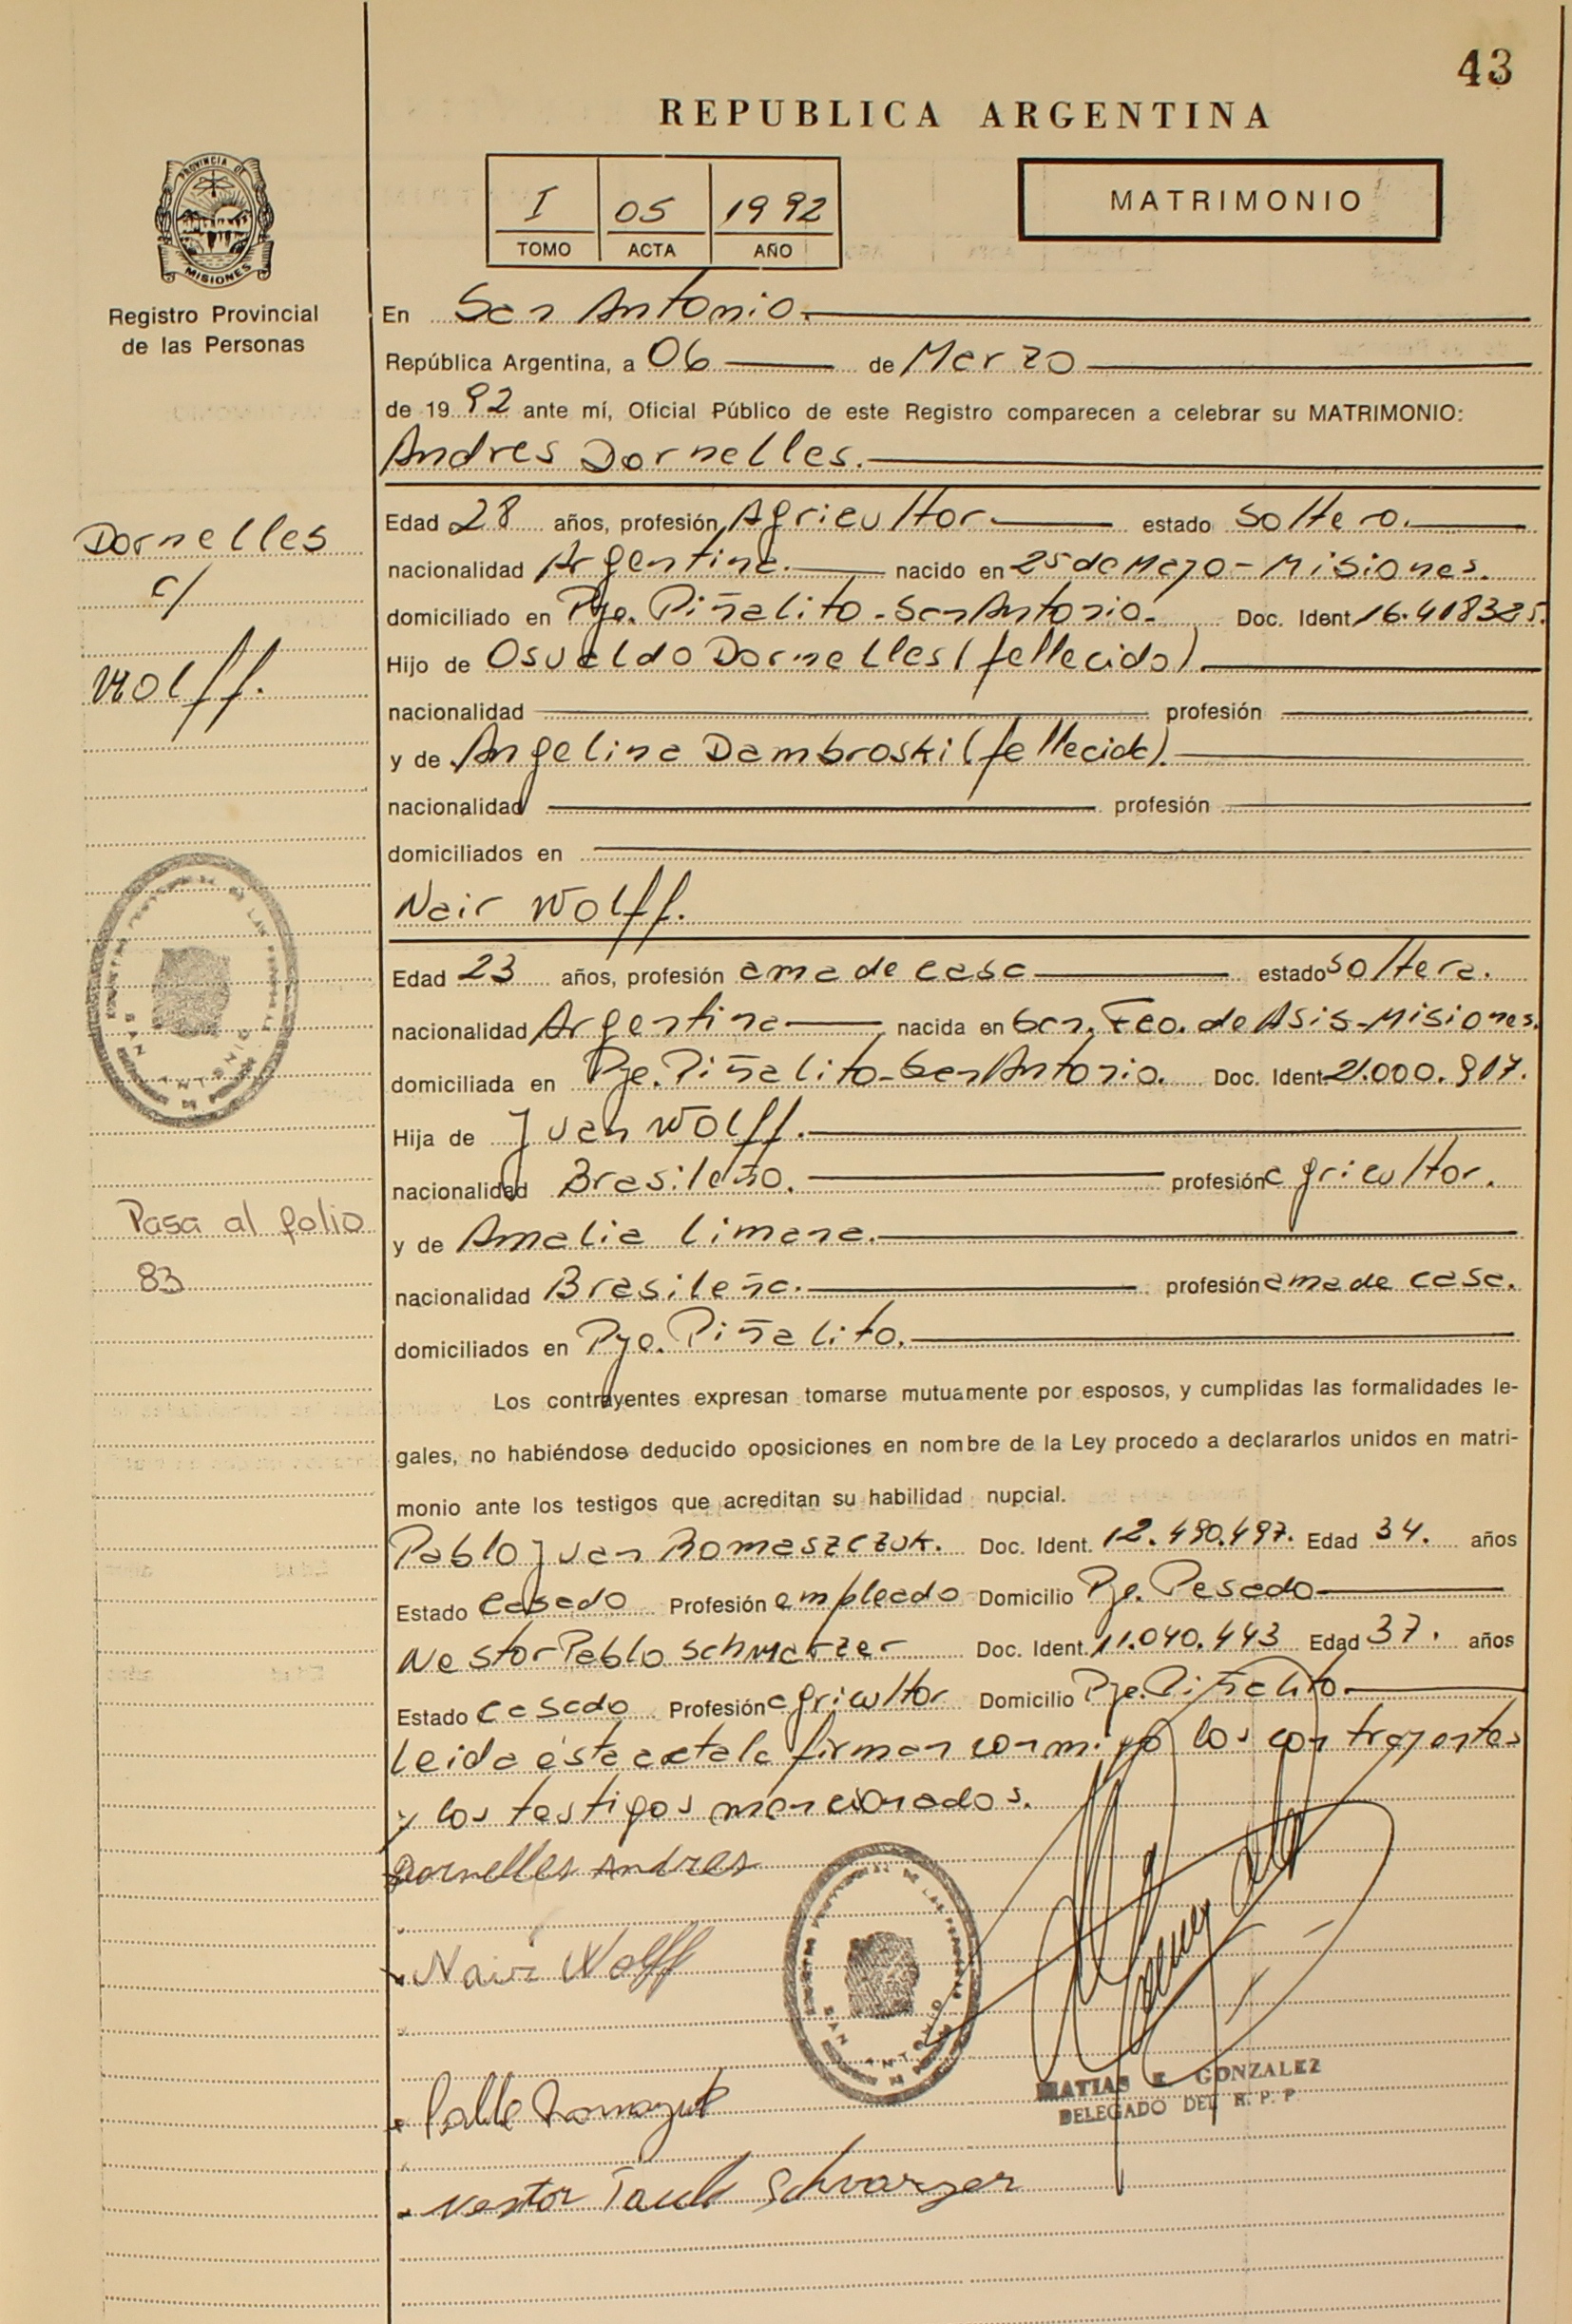 43
REPUBLICA ARGENTINA
I 05 1992
TOMO ACTA AÑO
MATRIMONIO
PROVINCIA DE
MISIONES
Registro Provincial
de las Personas
En San Antonio.
República Argentina, a 06 de Marzo
de 1992 ante mí, Oficial Público de este Registro comparecen a celebrar su MATRIMONIO:
Andres Dornelles.
Dornelles
c/
Wolff.
Edad 28 años, profesión Agricultor. estado soltero.
nacionalidad Argentina. nacido en 25 de Mayo - Misiones.
domiciliado en Pje. Piñalito - San Antonio. Doc. Ident 16.418325.
Hijo de Osvaldo Dornelles (fallecido).
nacionalidad profesión
y de Angelina Dambroski (fallecida).
nacionalidad profesión
domiciliados en
Nair Wolff.
Edad 23 años, profesión ama de casa estado soltera.
nacionalidad Argentina nacida en San. Fco. de Asis - Misiones.
domiciliada en Pje. Piñalito - San Antonio. Doc. Ident 21.000.917.
Hija de Juan Wolff.
nacionalidad Brasileño. profesión agricultor.
Pasa al folio
83
y de Amalia Limana.
nacionalidad Brasileña. profesión ama de casa.
domiciliados en Pje. Piñalito.
Los contrayentes expresan tomarse mutuamente por esposos, y cumplidas las formalidades le-
gales, no habiéndose deducido oposiciones en nombre de la Ley procedo a declararlos unidos en matri-
monio ante los testigos que acreditan su habilidad nupcial.
Pablo Juan Romaszczuk. Doc. Ident. 12.490.497. Edad 34. años
Estado casado Profesión empleado Domicilio Pje. Pesado
Nestor Pablo Schwarzer Doc. Ident. 11.040.443 Edad 37. años
Estado casado Profesión agricultor Domicilio Pje. Piñalito.
Leida ésta acta la firman conmigo los contrayentes
y los testigos mencionados.
Dornelles Andres
Nair Wolff
SAN ANTONIO
MATIAS E GONZALEZ
DELEGADO DEL R. P. P
Nestor Schvarzer